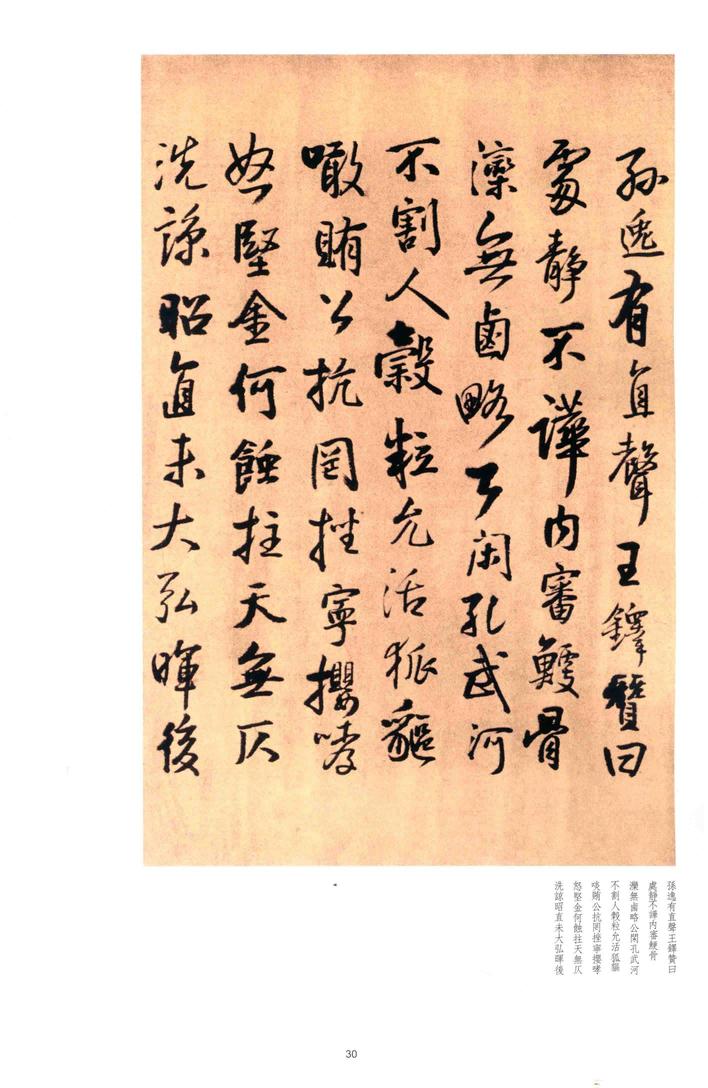 孫逸有直聲王鐸贊曰
處靜不譁内審鯁骨
灤無鹵略公閑孔武河
不割人穀粒允活狐貙
噉賄公抗罔挫寧攖哮
怒堅金何蝕拄天無仄
洗諒昭直未大弘暉後
孫逸有直聲王鐸贊曰
處靜不譁内審鯁骨
灤無鹵略公閑孔武河
不割人穀粒允活狐貙
啖賄公抗罔挫寧攖哮
怒堅金何蝕拄天無仄
洗諒昭直未大弘暉後
30